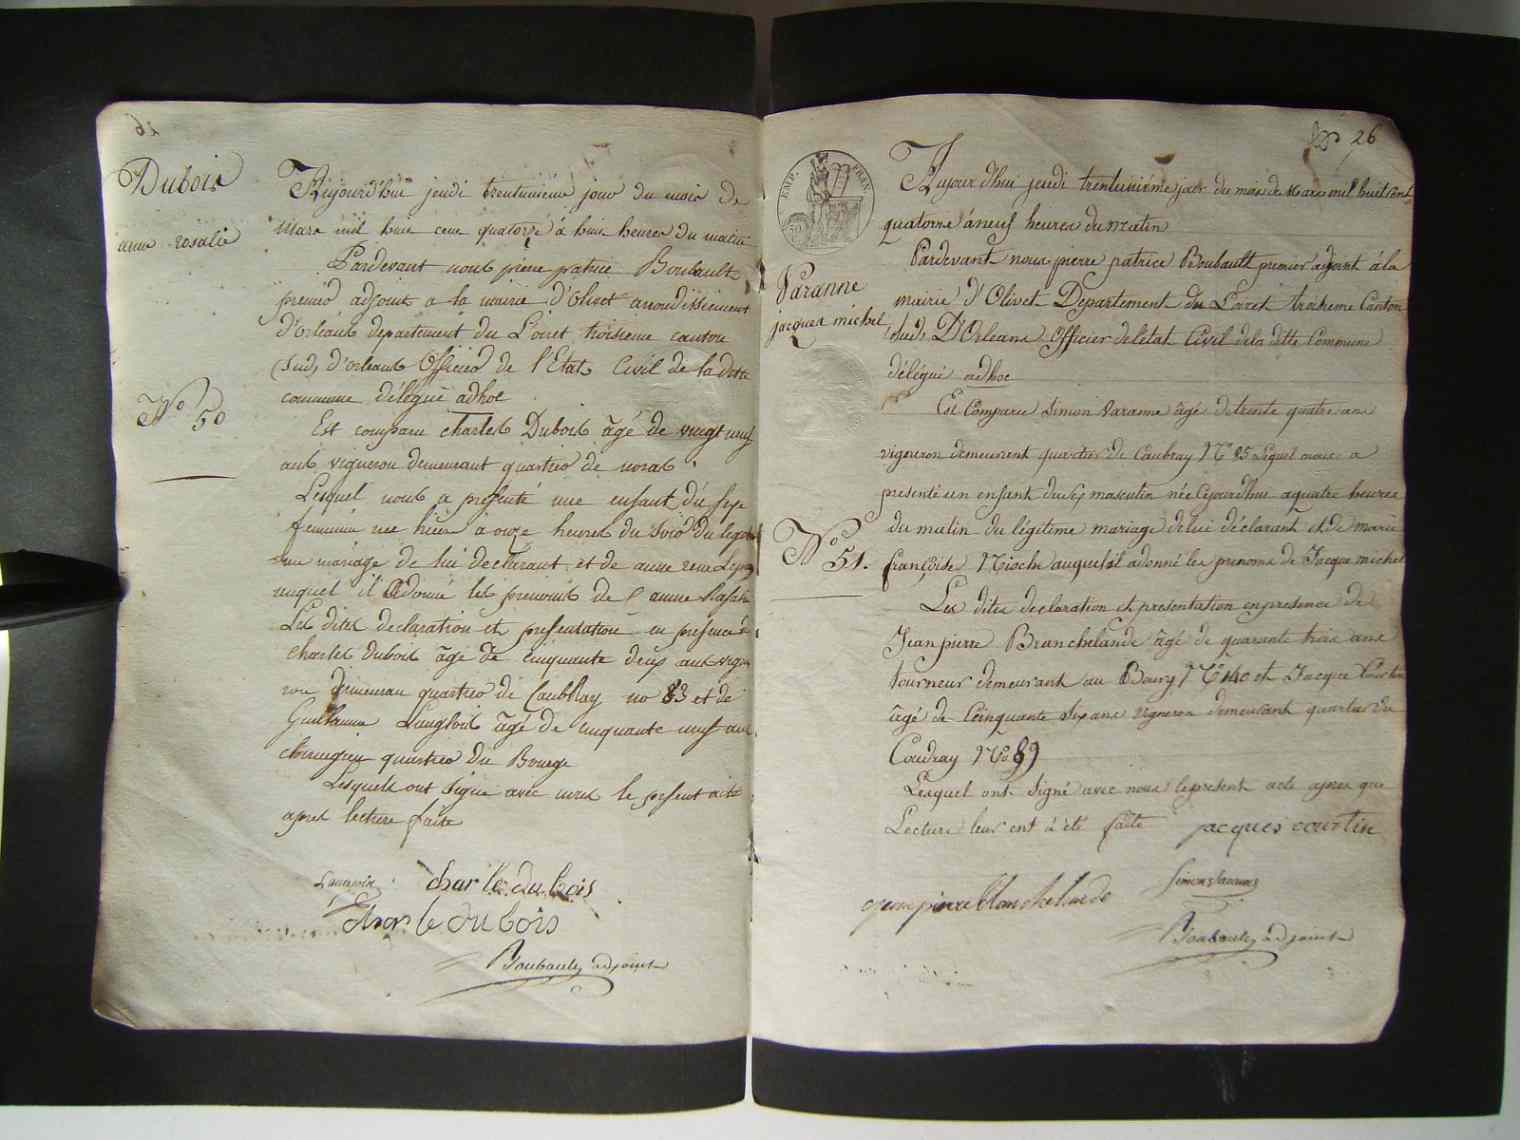 Dubois
anne rosalie
No 50
Aujourd'hui jeudi trentunième jour du mois de
Mars mil huit cent quatorze à huit heures du matin
Pardevant nous pierre patrice Boubault
premier adjoint a la mairie d'Olivet arrondissement
d'Orléans departement du Loiret troisieme canton
Sud, d'orleans Officier de l'Etat Civil de la dette
commune délégué adhoc
Est comparu charles Dubois âgé de vingt neuf
ans vigneron demeurant quartier de
Lesquel nous a presenté une enfant du sexe
feminin nee hier a onze heures du soir du legit
mariage de lui declarant et de anne
auquel il a donné les prenoms de anne
Les dites declaration et presentation en presence de
charles dubois âgé de cinquante deux ans vigne
ron demeuran quartier de Caubray no 83 et de
Guillaume Langlois âgé de cinquante neuf ans
chirurgien quartier du Bourg
Lesquels ont signé avec nous le present acte
apres lecture faite
charle dubois
charle dubois
Boubault adjoint
26
EMP. FRAN.
Varanne
jacques michel
No 51.
Aujourd'hui jeudi trentunième jour du mois de Mars mil huit Cent
quatorze à neuf heures du matin
Pardevant nous pierre patrice Boubault premier adjoint à la
mairie d'Olivet Departement du Loiret troisieme Canton
Sud, D'Orleans Officier deletat Civil dela ditte Commune
délégué adhoc
Est Comparu Simon Varanne âgé de trente quatre ans
vigneron demeurent quartier de Caubray No 85 Lequel nous a
presenté un enfant du sex masculin née Cejourdhui a quatre heures
du matin du légitime mariage de lui déclarant et de marie
françoise Nioche auquel il a donné les prenoms de Jacque michel
Les dites declaration et presentation en presence de
Jean pierre Branchelande âgé de quarante trois ans
tourneur demeurant au Bourg No 140 et Jacque Courtin
âgé de Cinquante six ans vigneron demeurant quartier du
Coudray No 89
Lesquel ont signé avec nous le present acte apres que
Lecture leur ent à été faite jacques courtin
Simon Varanne
jean pierre blanchelande
Boubault adjoint